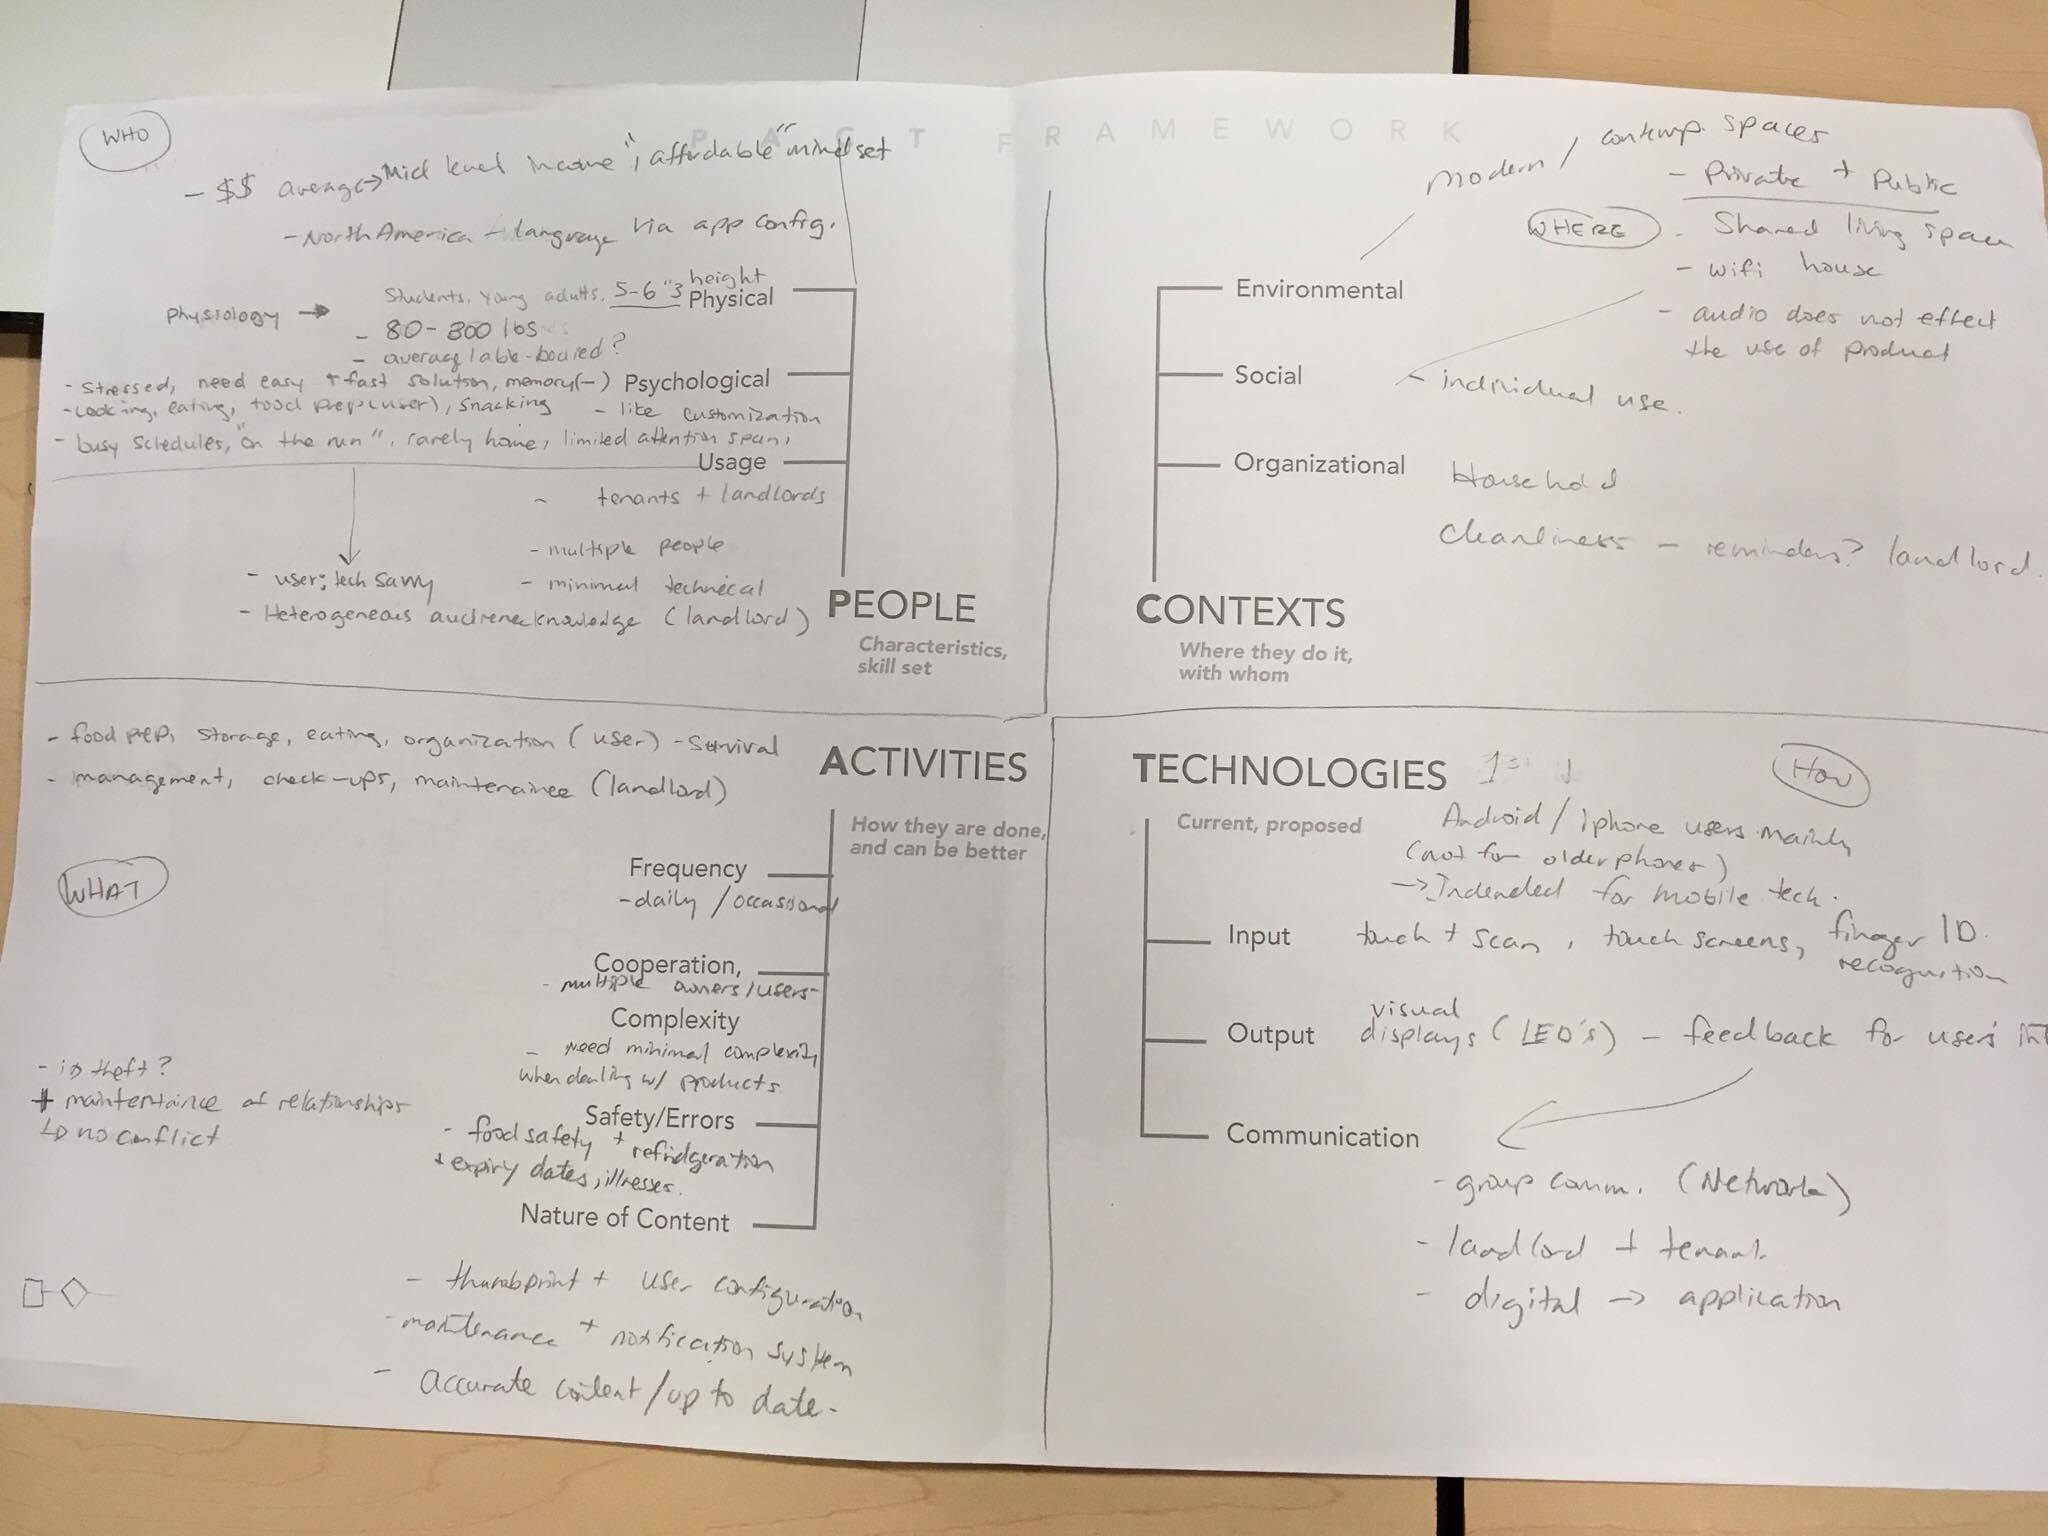 PACT FRAMEWORK
WHO
- $$ average → Mid level income", affordable" mindset
- North America + language via app config.
height
Students, young adults, 5-6"3 Physical
physiology →
- 80-300 lbs
- average/able-bodied?
- Stressed, need easy + fast solution, memory(-) Psychological
- cooking, eating, food prep (user), snacking - like customization
- busy schedules, "on the run", rarely home, limited attention span,
Usage
- tenants + landlords
- multiple people
- user; tech savvy - minimal technical
- Heterogeneous audience knowledge (landlord)
PEOPLE
Characteristics,
skill set
modern / contemp. spaces
- Private + Public
WHERE
- Shared living spaces
- wifi house
- audio does not effect
the use of product
Environmental
Social
- individual use.
Organizational
Household
cleanliness - reminders? landlord.
CONTEXTS
Where they do it,
with whom
- food prep, storage, eating, organization (user) - Survival
- management, check-ups, maintenainee (landlord)
ACTIVITIES
How they are done,
and can be better
WHAT
Frequency
- daily / occassional
Cooperation,
- multiple owners/users-
Complexity
- need minimal complexity
when dealing w/ products.
- is theft?
maintentaince of relationships
↳ no conflict
Safety/Errors
- food safety + refridgeration
+ expiry dates, illnesses.
Nature of Content
- thumbprint + user configuration
- maintenance + notification system
- accurate content/up to date-
TECHNOLOGIES
HOW
Current, proposed
Android / Iphone users mainly
(not for older phones)
→ Indended for mobile tech.
Input touch + scan, touch screens, finger ID
recognition
visual
Output displays (LED's) - feedback for users
Communication
- group comm. (Network)
- landlord + tenant.
- digital → application